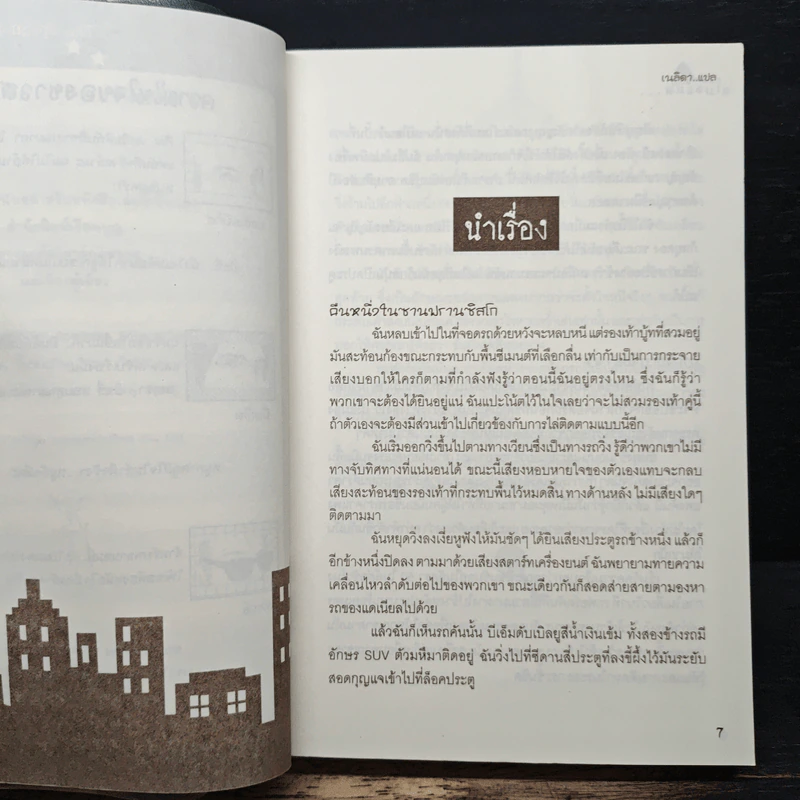 เนลิดา..แปล
นำเรื่อง
คืนหนึ่งในซานฟรานซิสโก
ฉันหลบเข้าไปในที่จอดรถด้วยหวังจะหลบหนี แต่รองเท้าบู้ทที่สวมอยู่
มันสะท้อนก้องขณะกระทบกับพื้นซีเมนต์ที่เลือกลื่น เท่ากับเป็นการกระจาย
เสียงบอกให้ใครก็ตามที่กำลังฟังรู้ว่าตอนนี้ฉันอยู่ตรงไหน ซึ่งฉันก็รู้ว่า
พวกเขาจะต้องได้ยินอยู่แน่ ฉันแปะโน้ตไว้ในใจเลยว่าจะไม่สวมรองเท้าคู่นี้
ถ้าตัวเองจะต้องมีส่วนเข้าไปเกี่ยวข้องกับการไล่ติดตามแบบนี้อีก
ฉันเริ่มออกวิ่งขึ้นไปตามทางเวียนซึ่งเป็นทางรถวิ่ง รู้ดีว่าพวกเขาไม่มี
ทางจับทิศทางที่แน่นอนได้ ขณะนี้เสียงหอบหายใจของตัวเองแทบจะกลบ
เสียงสะท้อนของรองเท้าที่กระทบพื้นไว้หมดสิ้น ทางด้านหลัง ไม่มีเสียงใดๆ
ติดตามมา
ฉันหยุดวิ่งลงเงี่ยหูฟังให้มันชัดๆ ได้ยินเสียงประตูรถข้างหนึ่ง แล้วก็
อีกข้างหนึ่งปิดลง ตามมาด้วยเสียงสตาร์ทเครื่องยนต์ ฉันพยายามทายความ
เคลื่อนไหวลำดับต่อไปของพวกเขา ขณะเดียวกันก็สอดส่ายสายตามองหา
รถของแดเนียลไปด้วย
แล้วฉันก็เห็นรถคันนั้น บีเอ็มดับเบิลยูสีน้ำเงินเข้ม ทั้งสองข้างรถมี
อักษร SUV ตัวมหึมาติดอยู่ ฉันวิ่งไปที่ซีดานสี่ประตูที่ลงขี้ผึ้งไว้มันระยับ
สอดกุญแจเข้าไปที่ล็อคประตู
7